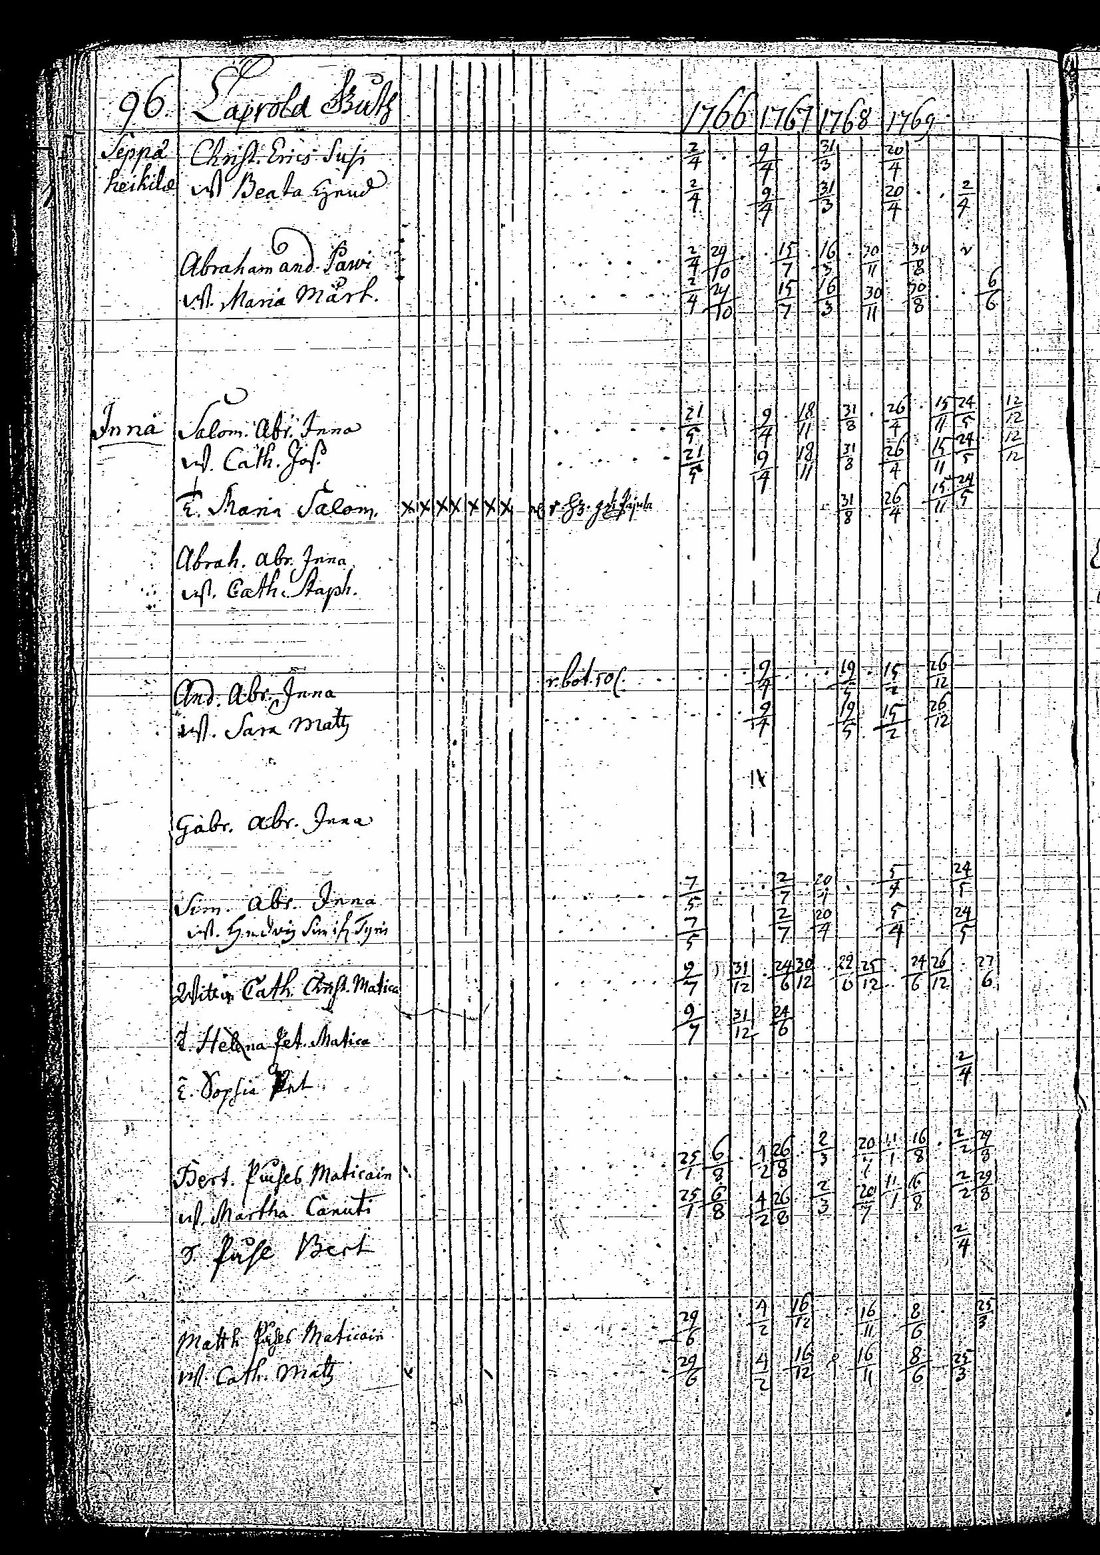 96. Laprola
1766 1767 1768 1769
Seppä Christ. Erics Susi 2/4 9/4 31/3 20/4
heikilä w. Beata 2/4 9/4 31/3 20/4 2/4
Abraham and. Pawi 2/4 29/10 15/7 16/3 30/11 30/8
w. Maria Märt. 2/4 29/10 15/7 16/3 30/11 30/8 6/6
Inna Salom. Abr. Inna 21/5 9/4 18/11 31/8 26/4 15/11 24/5 12/12
w. Cath. Jos. 21/5 9/4 18/11 31/8 26/4 15/11 24/5 12/12
Maria Salom. x x x x x x x 31/8 26/4 15/11 24/5
Abrah. Abr. Inna
w. Cath. Staph.
And. Abr. Inna 9/4 19/5 15/2 26/12
w. Sara Matts 9/4 19/5 15/2 26/12
Gabr. Abr. Inna
Sim. Abr. Inna 7/5 2/7 20/4 5/4 24/5
w. Hedvig 7/5 2/7 20/4 5/4 24/5
Cath. Christ. Matica 9/7 31/12 24/6 30/12 25/12 24/6 26/12 27/6
Helena Pet. Matica 9/7 31/12 24/6
Sophia 2/4
Bert. Maticain 25/1 6/8 4/2 26/8 2/3 20/7 11/1 16/8 2/2 29/8
w. Martha Canuti 25/1 6/8 4/2 26/8 2/3 20/7 11/1 16/8 2/2 29/8
Bert 2/4
Matth. Maticain 29/6 4/2 16/12 16/11 8/6 25/3
w. Cath. Matts 29/6 4/2 16/12 16/11 8/6 25/3